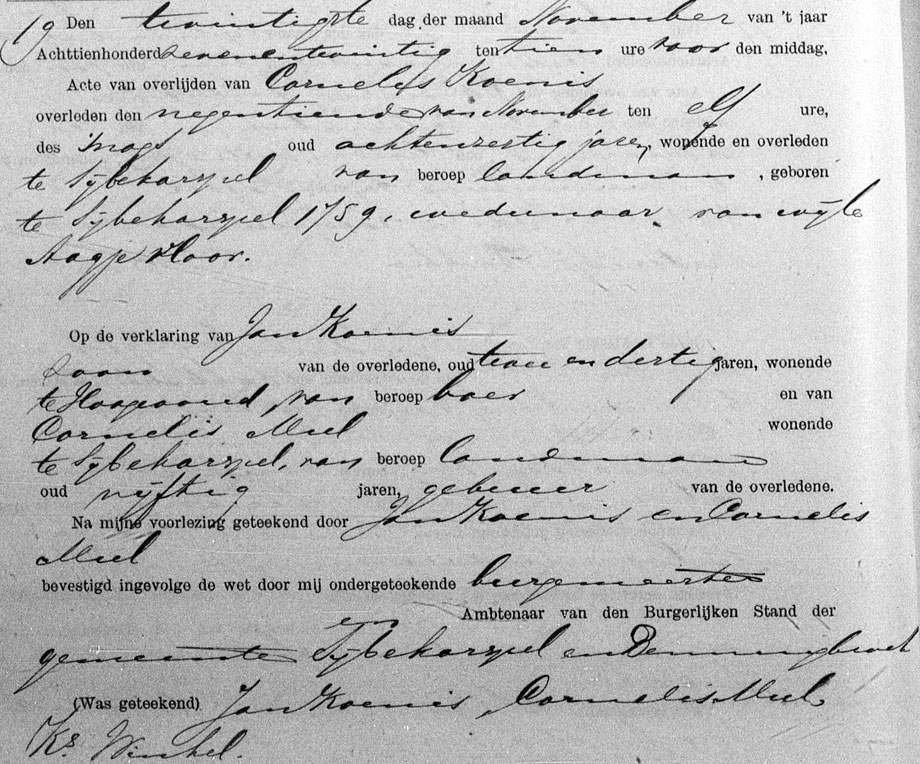 19 Den twintigste dag der maand November van 't jaar
Achttienhonderd zevenentwintig ten tien ure voor den middag,
Acte van overlijden van Cornelis Koenis
overleden den negentiende van November ten elf ure,
des 'snags oud achtenzestig jaren, wonende en overleden
te Sijbekarspel van beroep landman, geboren
te Sijbekarspel 1759, weduwnaar van wijle
Aagje Kloor.
Op de verklaring van Jan Koenis
zoon van de overledene, oud twee en dertig jaren, wonende
te Hoogwoud, van beroep boer en van
Cornelis Mul wonende
te Sijbekarspel, van beroep landman
oud vijftig jaren, gebuur van de overledene.
Na mijne voorlezing geteekend door Jan Koenis en Cornelis
Mul
bevestigd ingevolge de wet door mij ondergeteekende burgemeester
en Ambtenaar van den Burgerlijken Stand der
gemeente Sijbekarspel en Benningbroek
(Was geteekend) Jan Koenis, Cornelis Mul,
Ks Winkel.